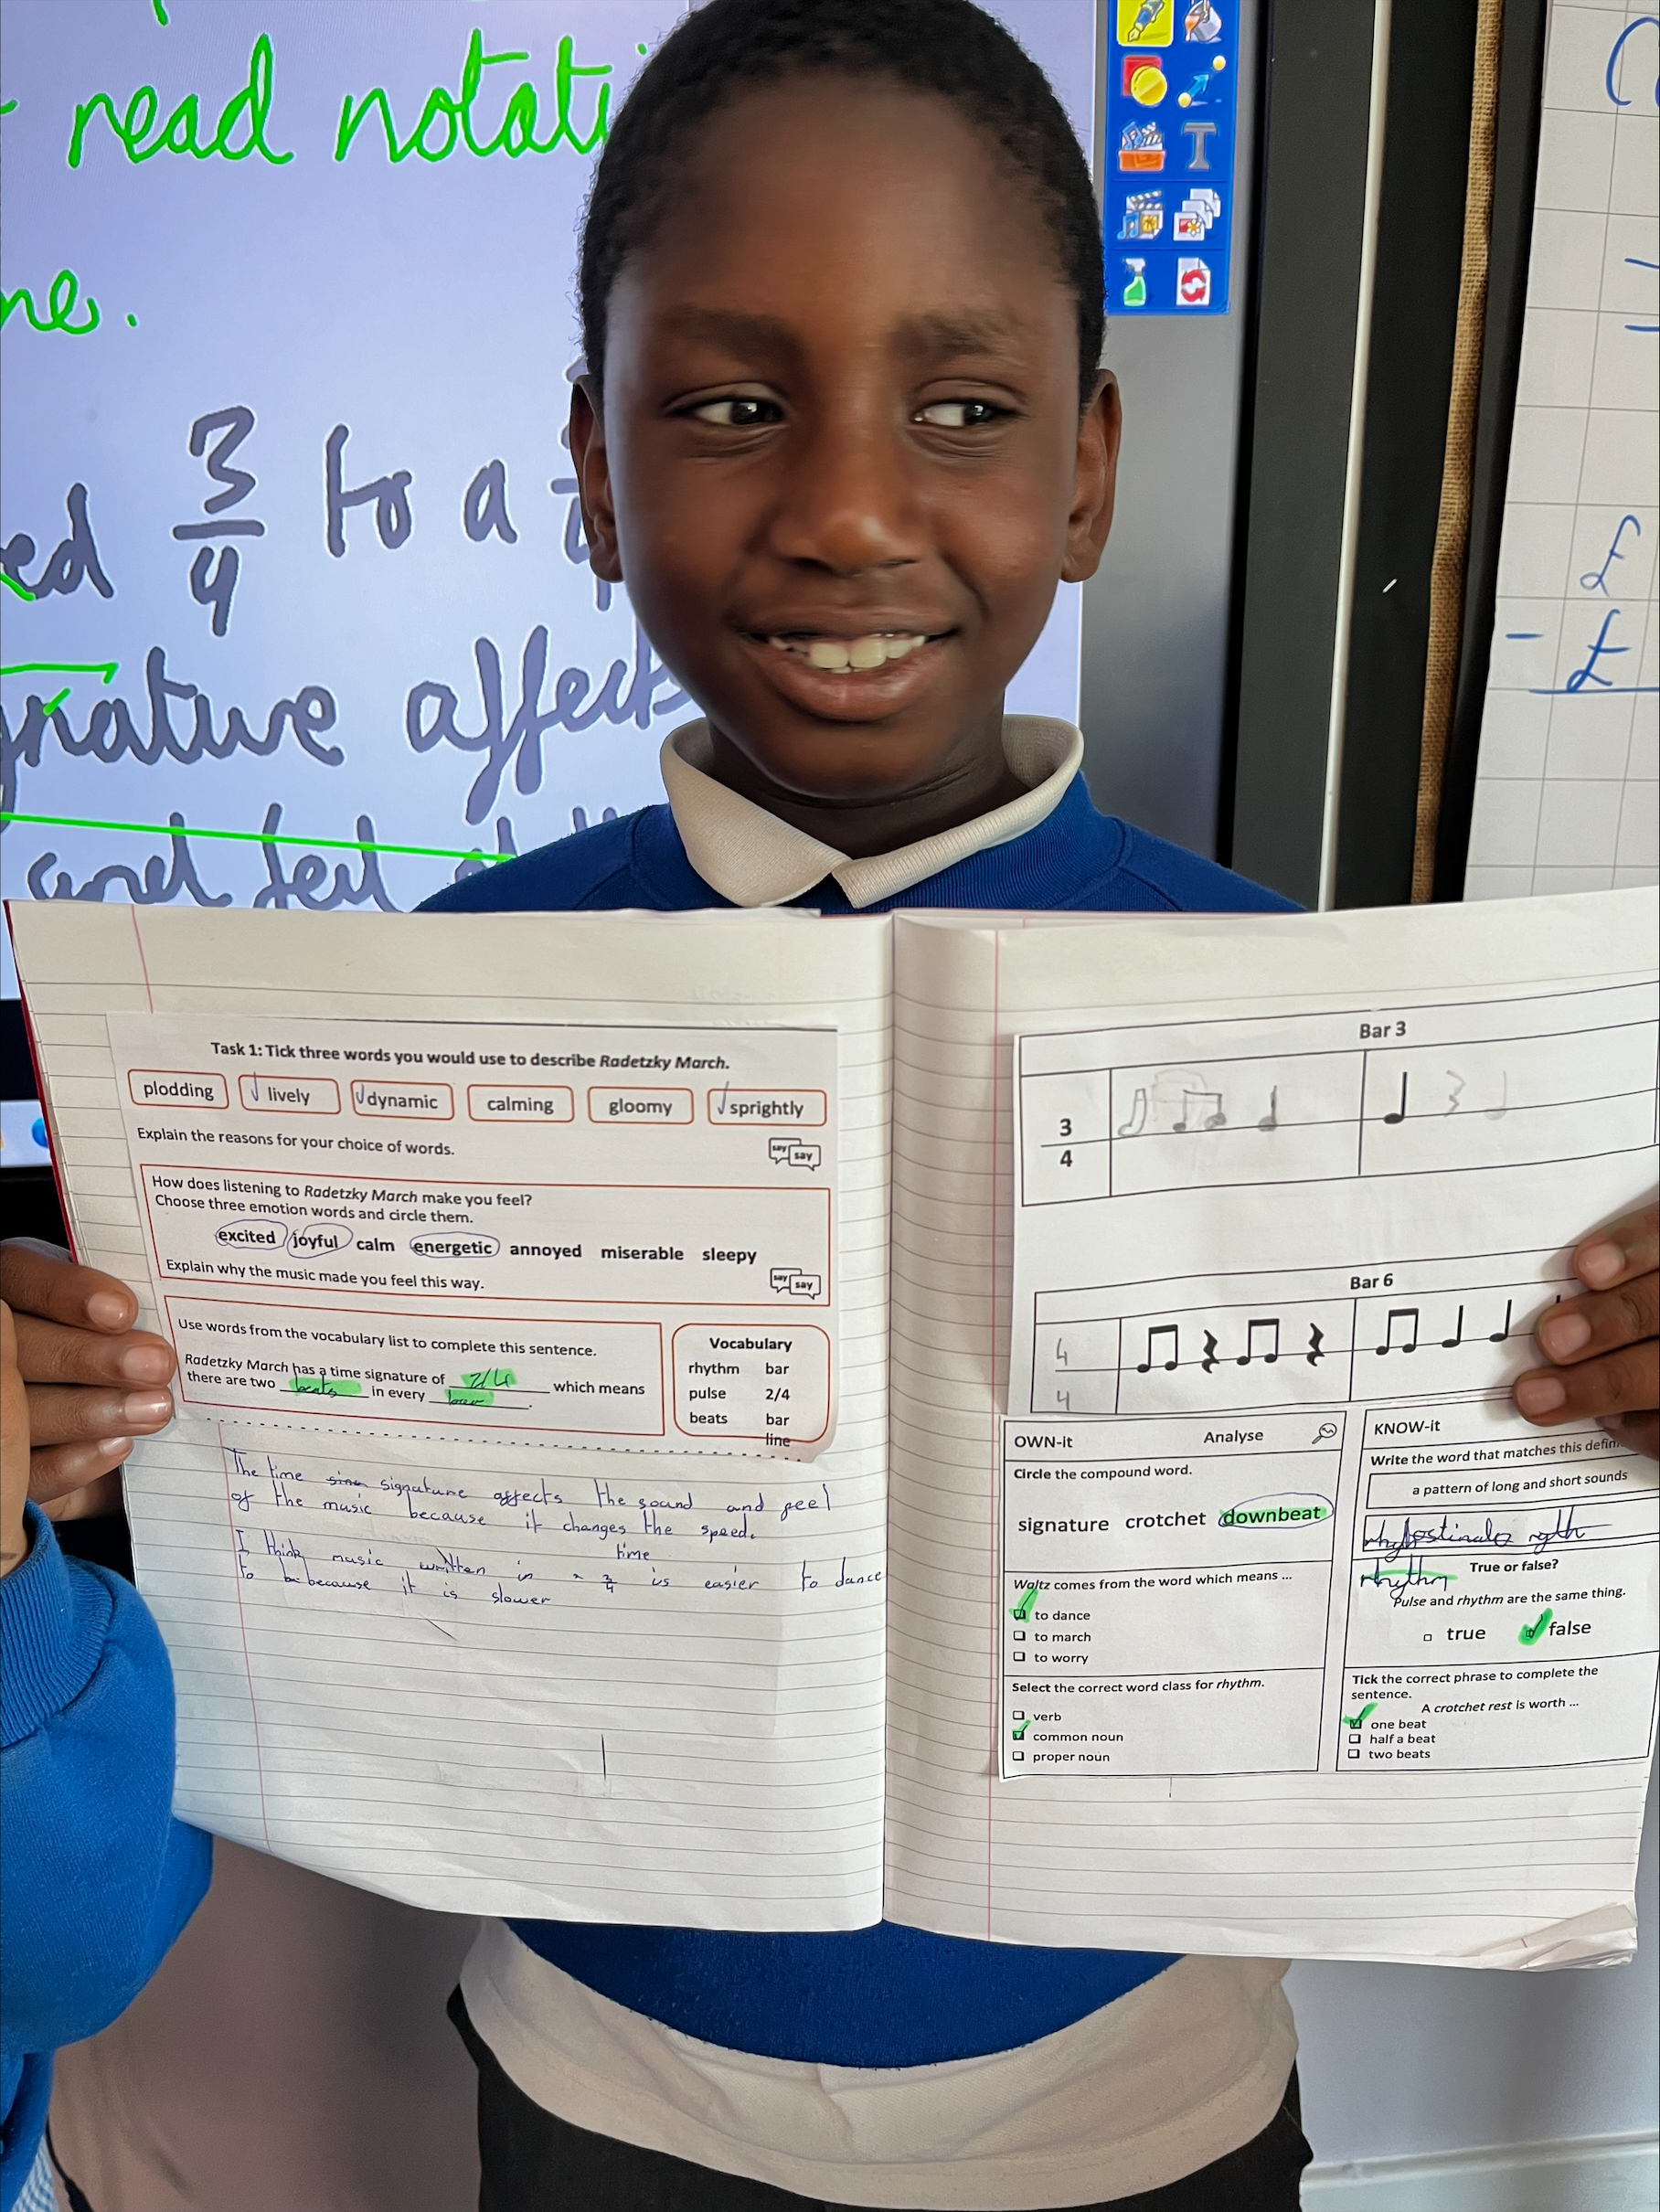 read notati
ne.
ed 3/4 to a
gnature affects
and feel of th
T
£
- £
Task 1: Tick three words you would use to describe Radetzky March.
plodding lively dynamic calming gloomy sprightly
Explain the reasons for your choice of words.
say say
How does listening to Radetzky March make you feel?
Choose three emotion words and circle them.
excited joyful calm energetic annoyed miserable sleepy
Explain why the music made you feel this way.
say say
Use words from the vocabulary list to complete this sentence.
Radetzky March has a time signature of 2/4 which means
there are two beats in every
Vocabulary
rhythm bar
pulse 2/4
beats bar
line
The time signature affects the sound and feel
of the music because it changes the speed.
time
I think music written in is easier to dance
to because it is slower
Bar 3
3
4
Bar 6
4
4
OWN-it Analyse
Circle the compound word.
signature crotchet downbeat
Waltz comes from the word which means ...
to dance
to march
to worry
Select the correct word class for rhythm.
verb
common noun
proper noun
KNOW-it
Write the word that matches this defin
a pattern of long and short sounds
rhythm
True or false?
Pulse and rhythm are the same thing.
true false
Tick the correct phrase to complete the
sentence.
A crotchet rest is worth ...
one beat
half a beat
two beats